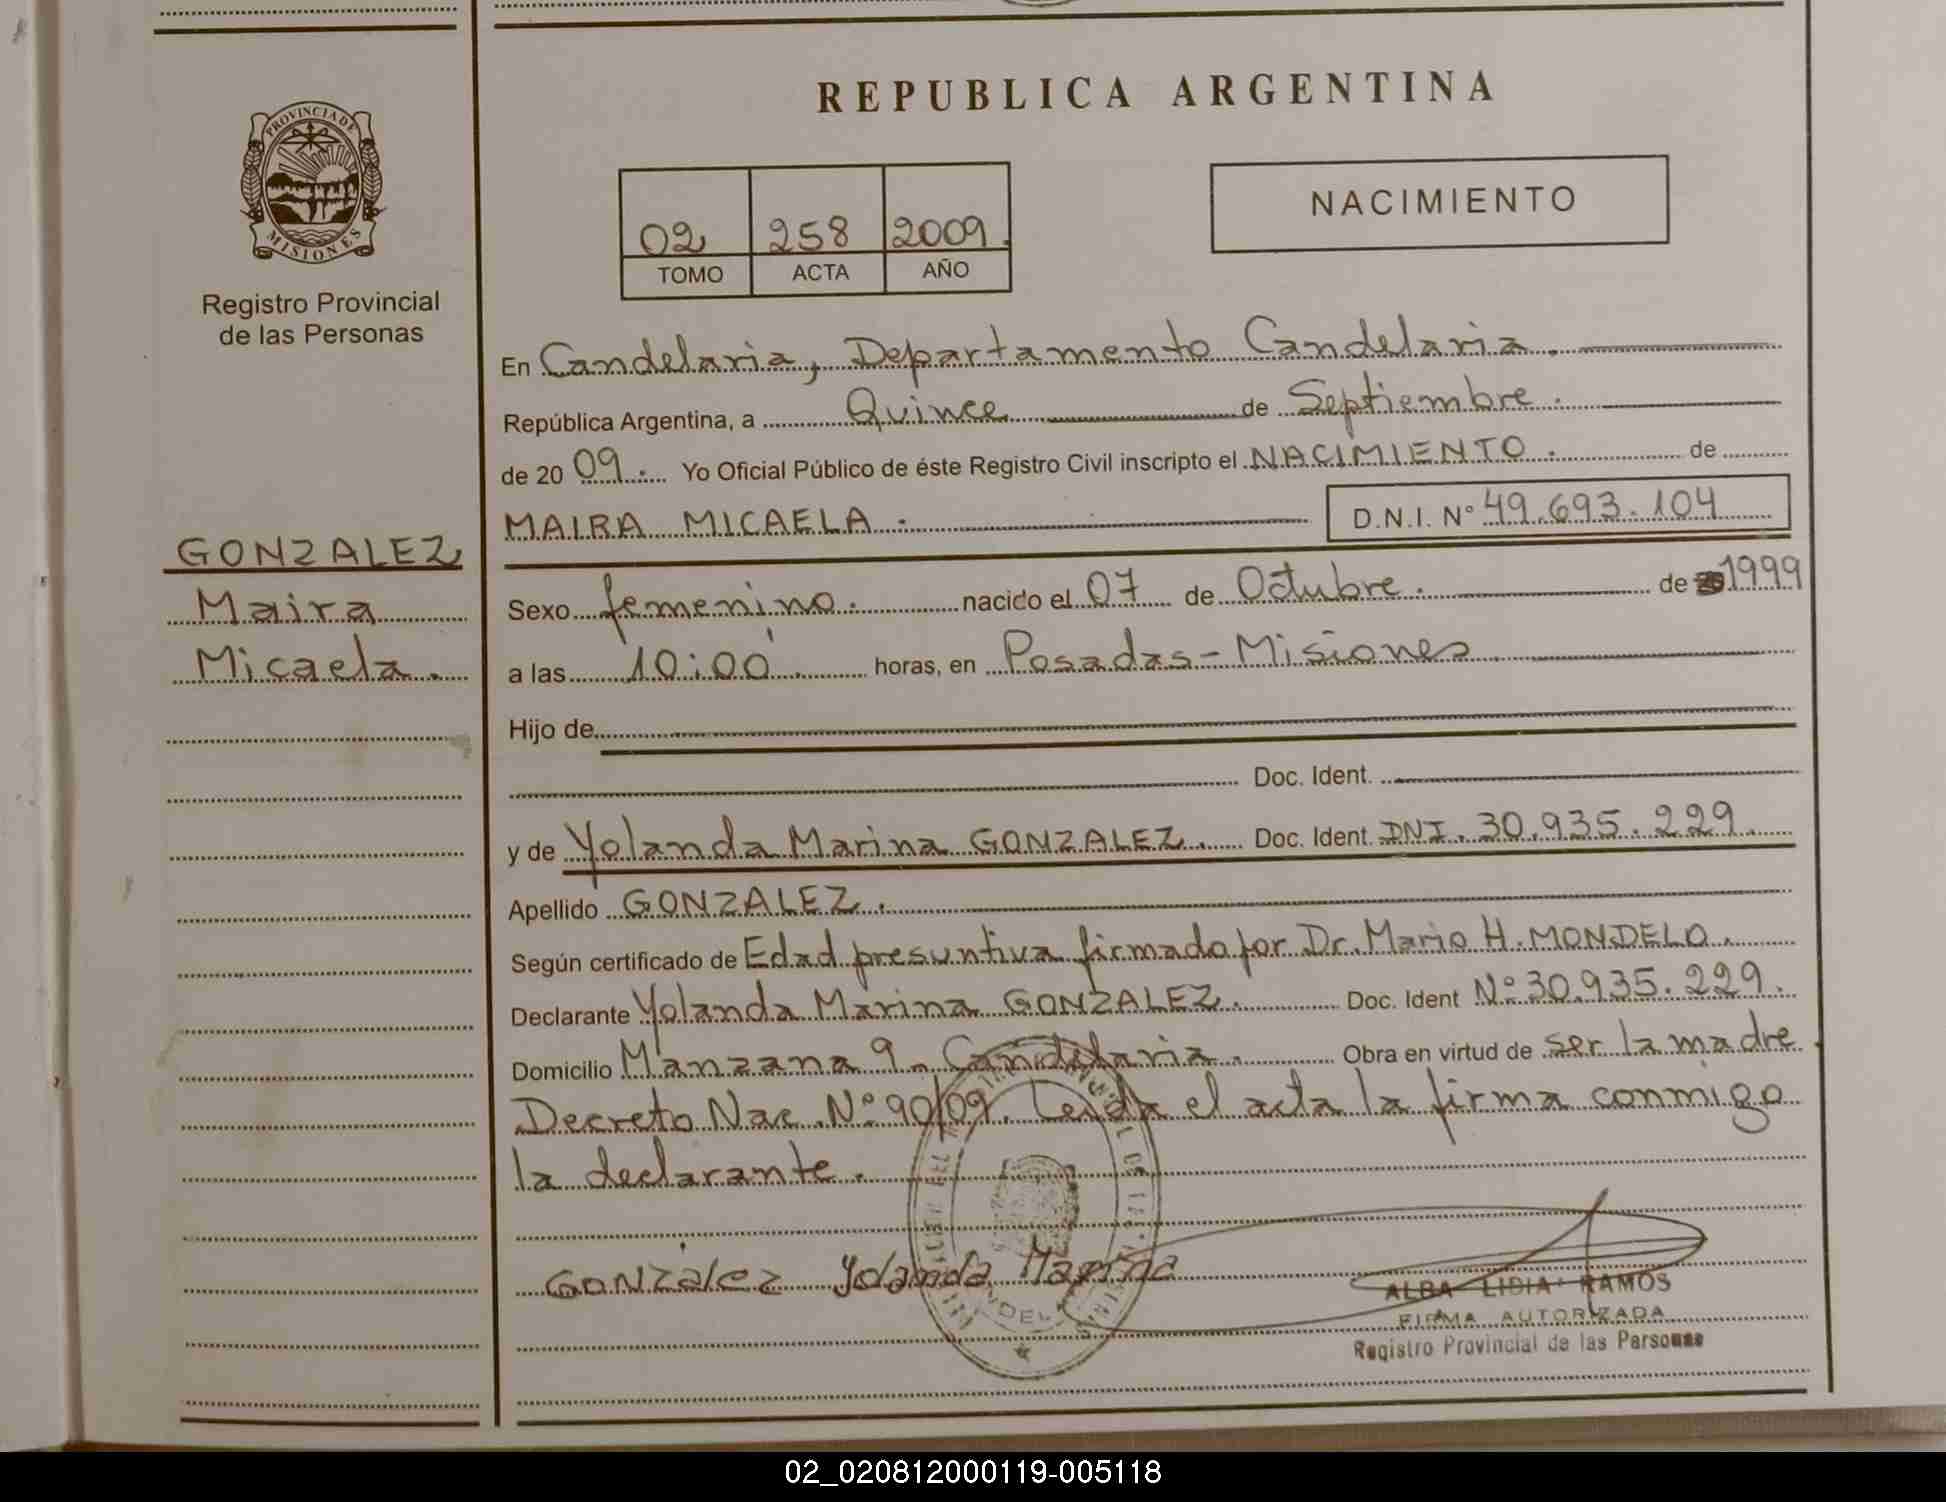 REPUBLICA ARGENTINA
PROVINCIA DE
MISIONES
Registro Provincial
de las Personas
02 258 2009
TOMO ACTA AÑO
NACIMIENTO
En Candelaria, Departamento Candelaria.
República Argentina, a Quince de Septiembre.
de 20 09. Yo Oficial Público de éste Registro Civil inscripto el NACIMIENTO. de
MAIRA MICAELA. D.N.I. N° 49.693.104
GONZALEZ
Maira
Micaela.
Sexo femenino. nacido el 07 de Octubre. de 1999
a las 10:00 horas, en Posadas-Misiones
Hijo de
Doc. Ident.
y de Yolanda Marina GONZALEZ. Doc. Ident. DNI. 30.935.229.
Apellido GONZALEZ.
Según certificado de Edad presuntiva firmado por Dr. Mario H. MONDELO.
Declarante Yolanda Marina GONZALEZ. Doc. Ident N° 30.935.229.
Domicilio Manzana 9- Candelaria. Obra en virtud de ser la madre
Decreto Nac. N° 90/09. Leida el acta la firma conmigo
la declarante.
GONZález Yolanda Marina
ALBA LIDIA RAMOS
FIRMA AUTORIZADA
Registro Provincial de las Personas
02_020812000119-005118